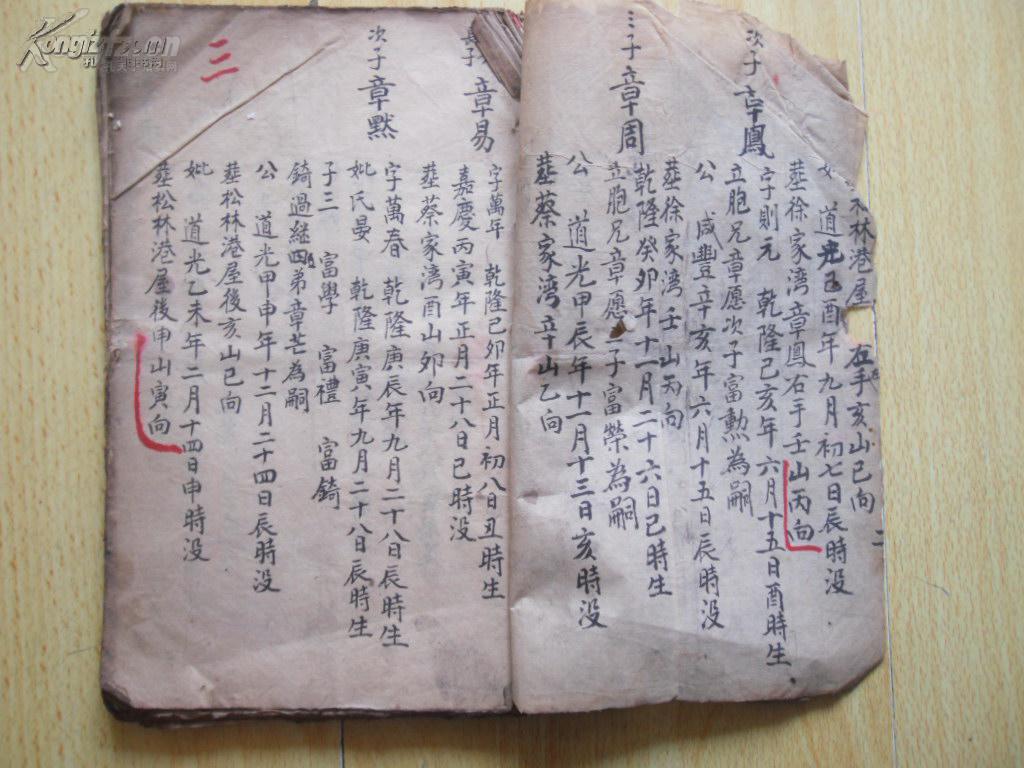 林港屋 在手亥山巳向
妣 道光己酉年九月初七日辰時没
塟徐家湾章鳳右手壬山丙向
次子 章鳳 字則元 乾隆己亥年六月十五日酉時生
立胞兄章愿次子富勲為嗣
公 咸豐辛亥年六月十五日辰時没
塟徐家湾壬山丙向
三子 章周 乾隆癸卯年十一月二十六日巳時生
立胞兄章愿 子富榮為嗣
公 道光甲辰年十一月十三日亥時没
塟蔡家湾辛山乙向
二
長子 章易 字萬年 乾隆己卯年正月初八日丑時生
嘉慶丙寅年正月二十八日巳時没
塟蔡家湾酉山卯向
次子 章黙 字萬春 乾隆庚辰年九月二十八日辰時生
妣氏晏 乾隆庚寅年九月二十八日辰時生
子三 富學 富禮 富錡
錡過継四弟章芒為嗣
公 道光甲申年十二月二十四日辰時没
塟松林港屋後亥山巳向
妣 道光乙未年二月十四日申時没
塟松林港屋後申山寅向
三